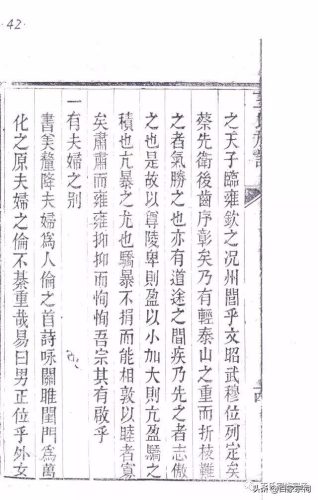 42
之天子臨雍欽之况州閭乎文昭武穆位列定矣
蔡先衛後齒序彰矣乃有輕泰山之重而折棱雖
之者氣勝之也亦有道途之間疾乃先之者志傲
之也是故以尊陵卑則盈以小加大則亢盈驕之
積也亢暴之尤也驕暴不捐而能相敦以睦者寡
矣肅肅而雍雍抑抑而恂恂吾宗其有敬乎
一有夫婦之别
書美釐降夫婦爲人倫之首詩咏關雎閨門爲萬
化之原夫婦之倫不綦重哉易曰男正位乎外女